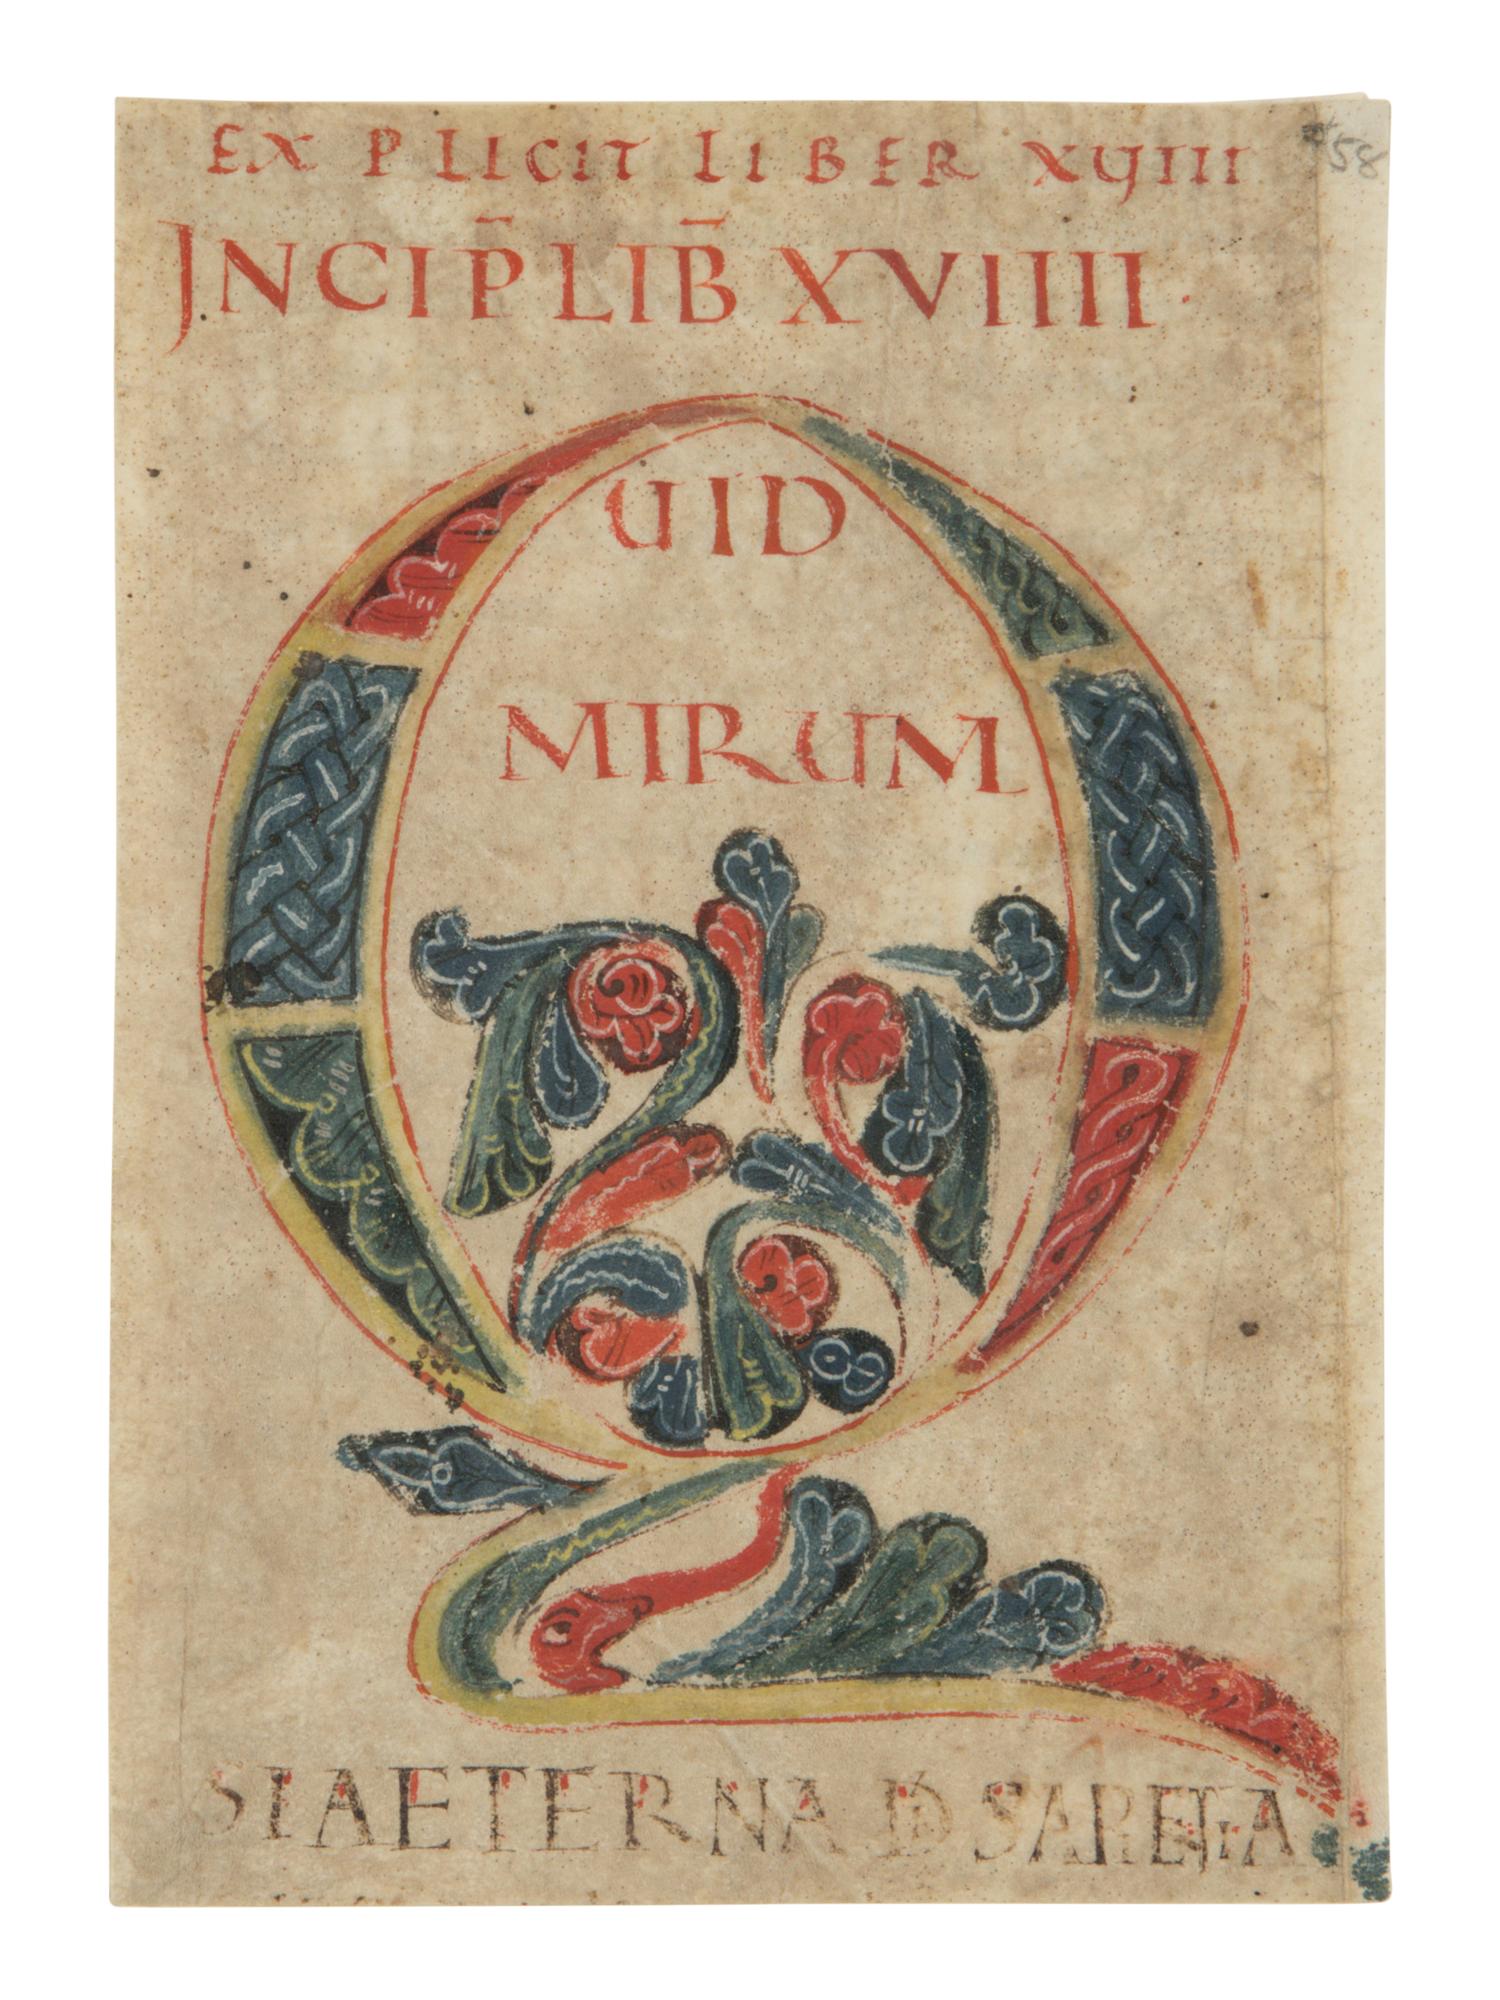 EXPLICIT LIBER XVIIII
58
INCIP̄ LIB̄ XVIIII·
QUID
MIRUM
SI AETERNA D̄I SAPIENTIA